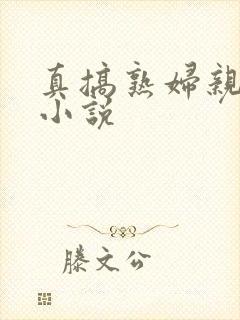 真搞熟婦親
小説
滕文公